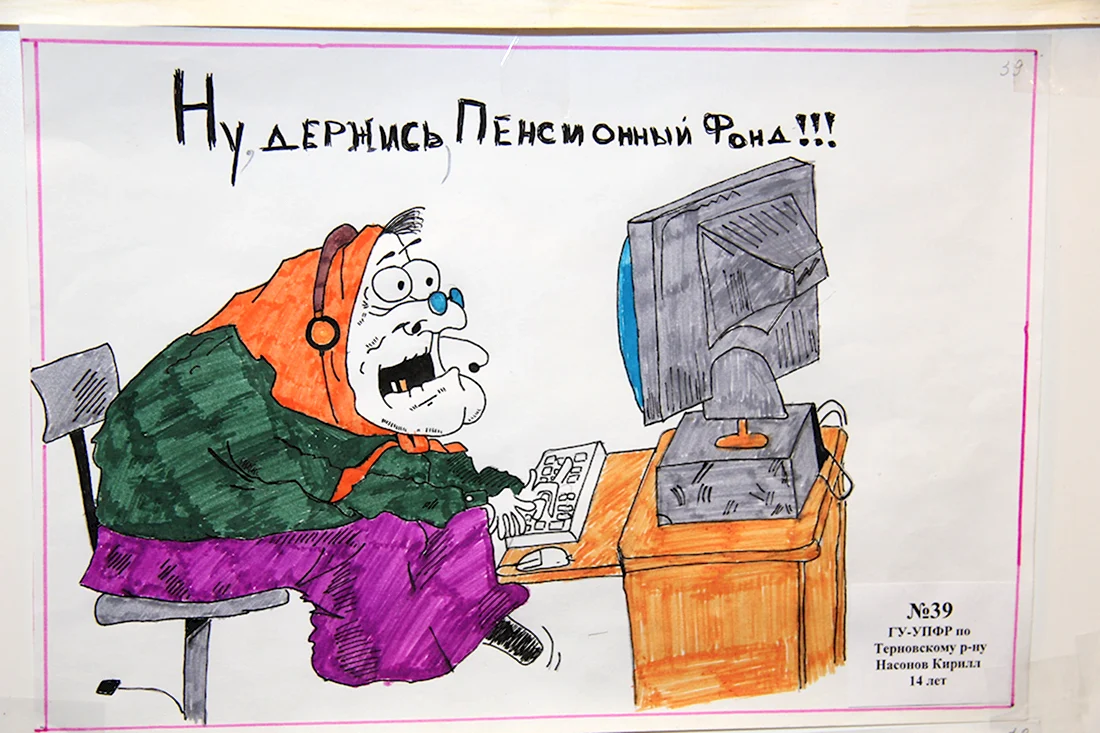 39
Ну, держись, Пенсионный Фонд!!!
№39
ГУ-УПФР по
Терновскому р-ну
Насонов Кирилл
14 лет